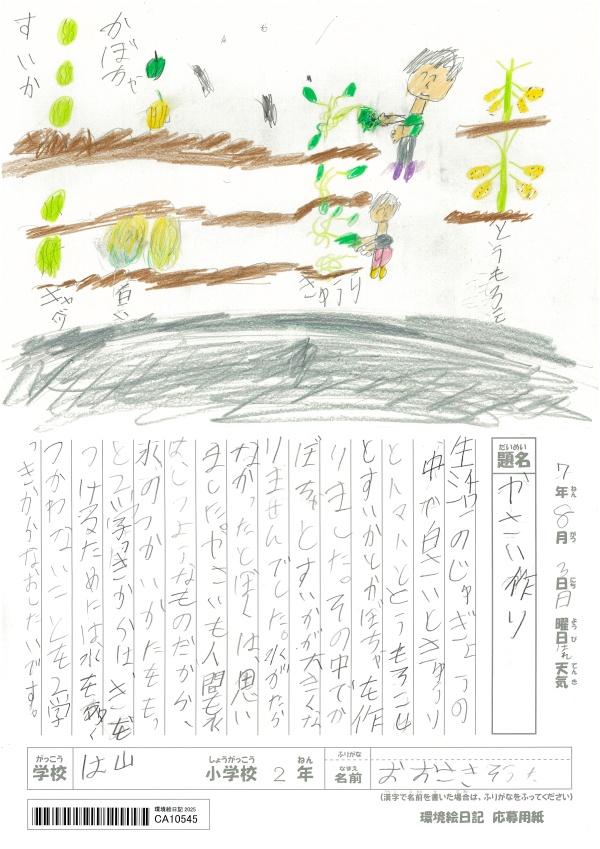 かぼちゃ
すいか
とうもろこし
きゅうり
白さい
キャベツ
7年8月3日日曜日はれ天気
ねん がつ にち ようび てんき
だいめい
題名
やさい作り
生活のじゅぎょうの
中が白さいときゅうり
とトマトととうもろこし
とすいかとかぼちゃを作
りました。その中でか
ぼちゃとすいかが大きくな
りませんでした。水がたりな
なかったとぼくは、思い
ました。やさいも人間も水
は、ひつようなものだから、
水のつかいかたをもっ
と2学っきからは、気を
つけるためには水を
つかわないことを2学
っきからなおしたいです。
がっこう
学校
は山
しょうがっこう
小学校
2
ねん
年
ふりがな
なまえ
名前
おおさきそうた
(漢字で名前を書いた場合は、ふりがなをふってください)
環境絵日記 2025
CA10545
環境絵日記 応募用紙